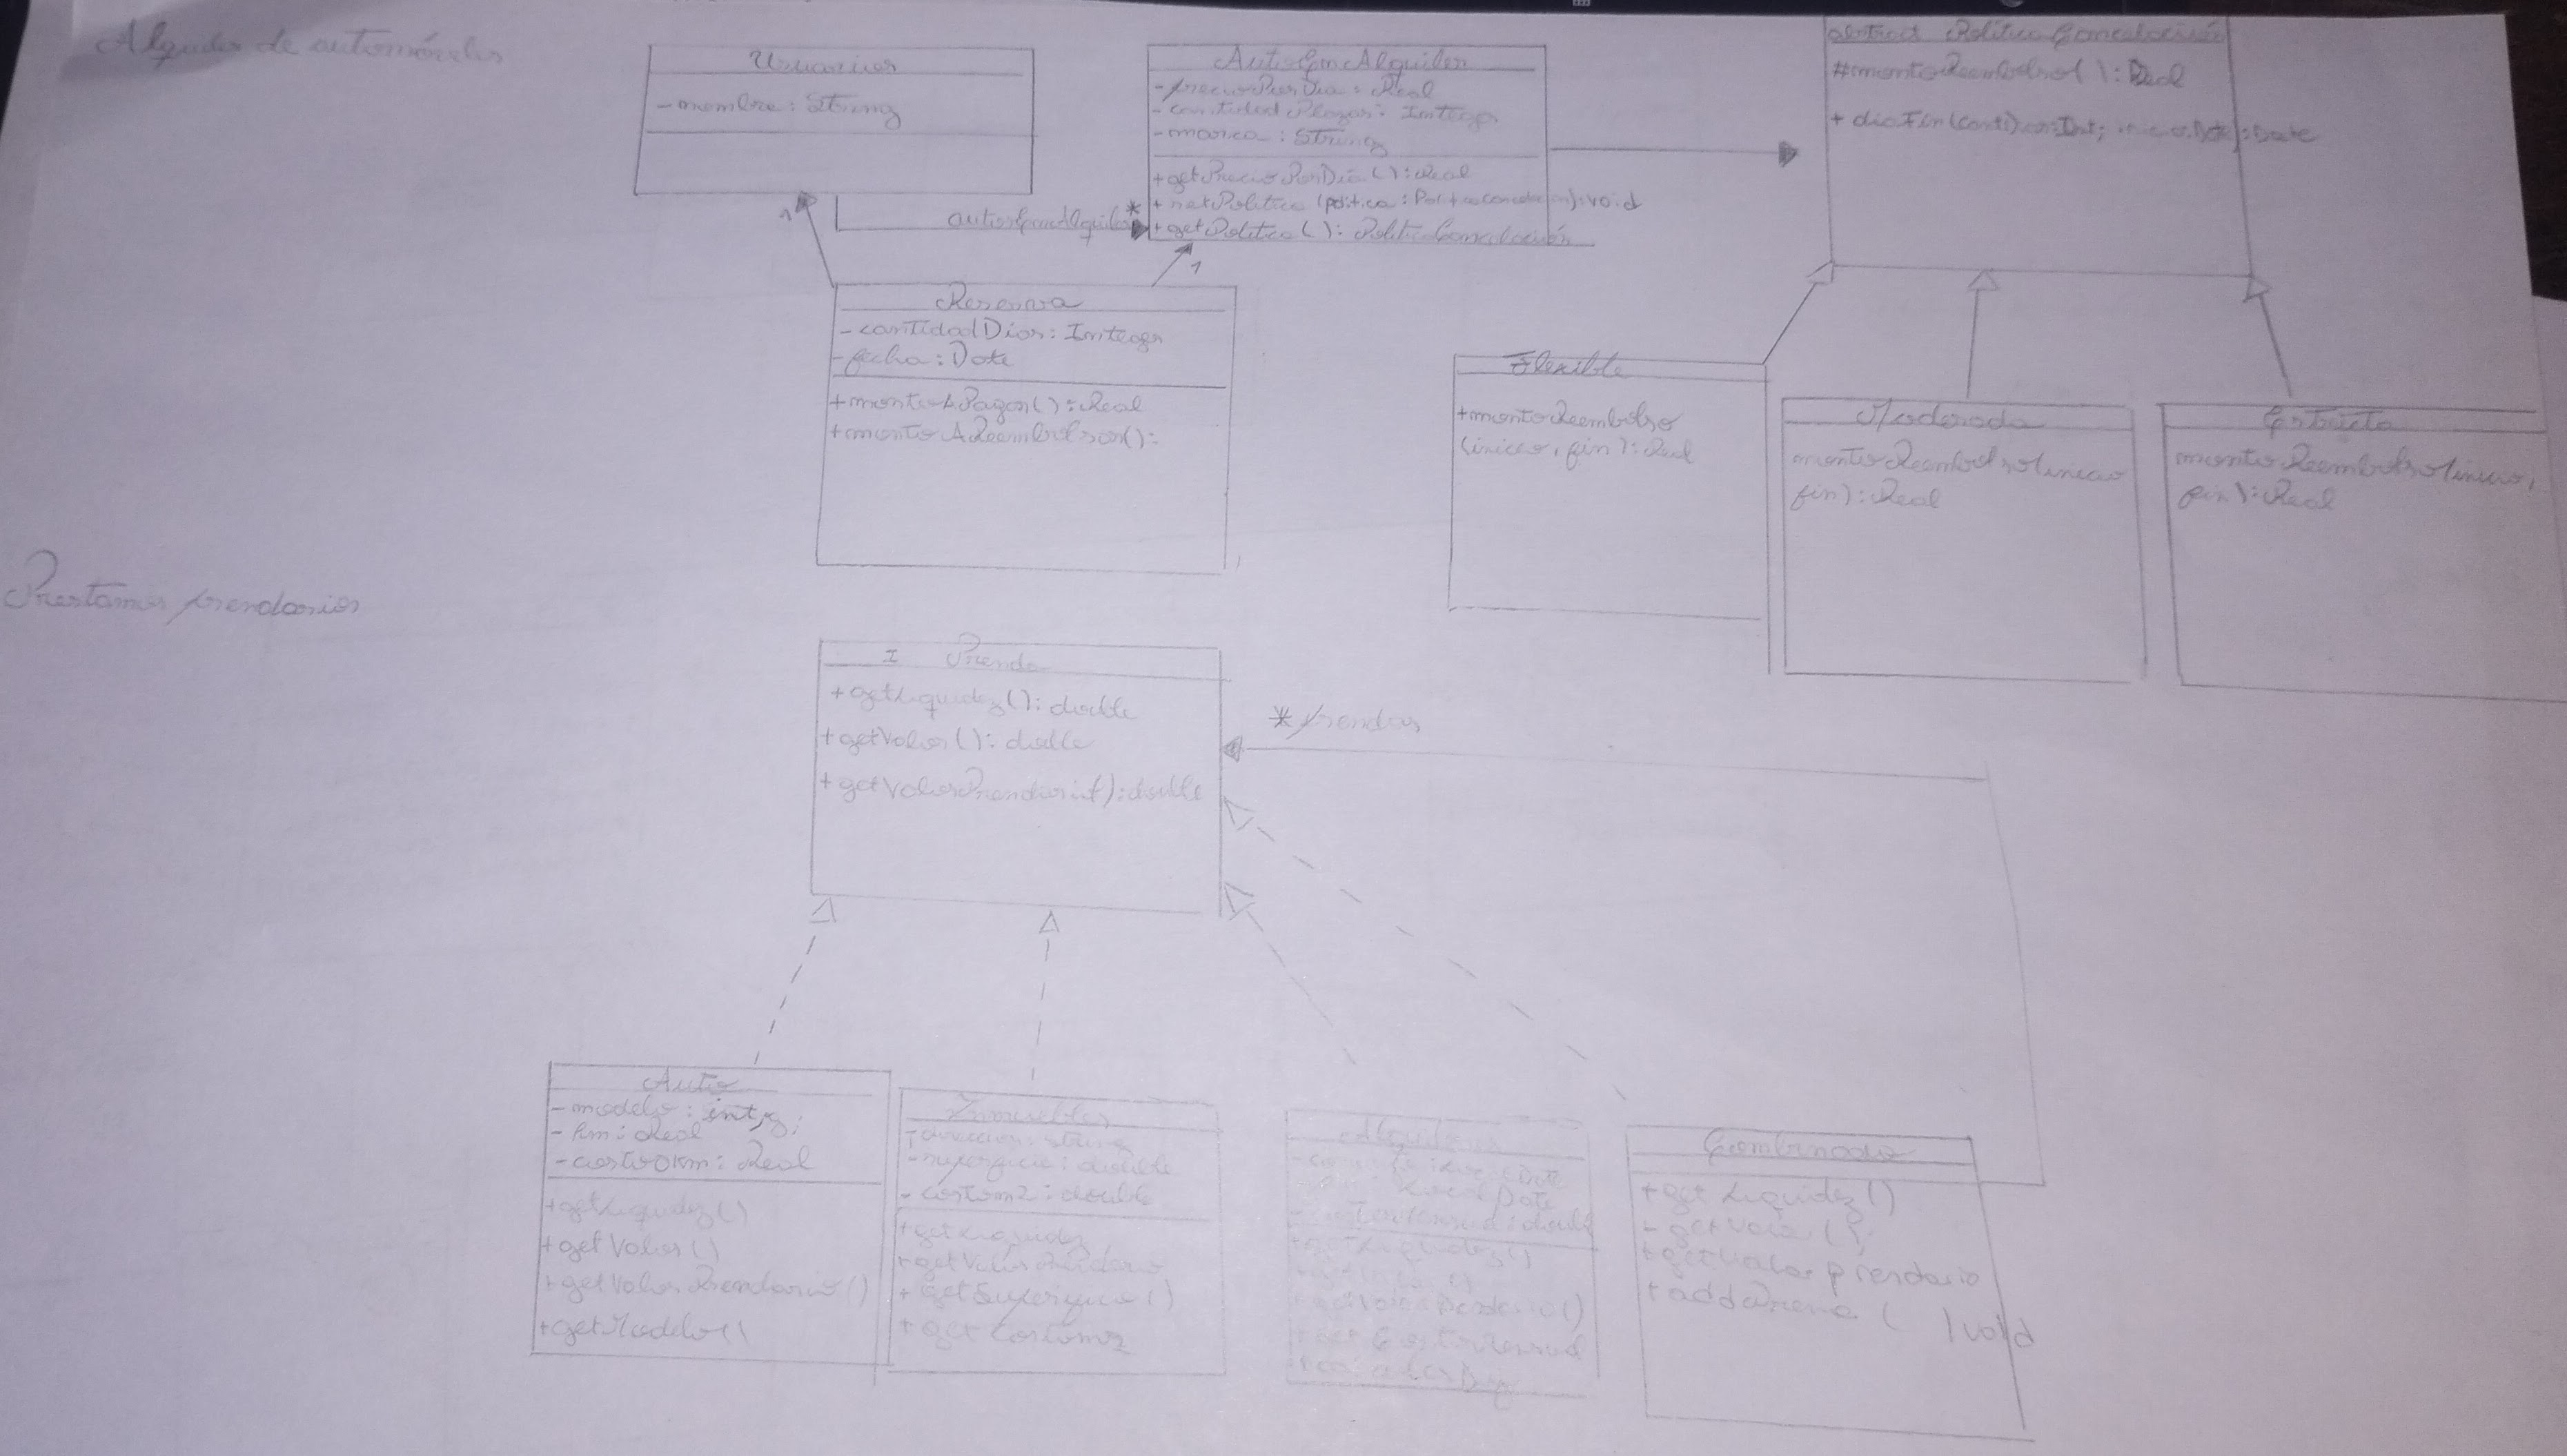 Alquiler de automóviles
Usuarios
- nombre: String
AutoEnAlquiler
- precioPorDia: Real
- cantidadPlazas: Integer
- marca: String
+ getPrecioPorDia(): Real
+ setPolitica (politica: PoliticaCancelacion): void
+ getPolitica(): PoliticaCancelación
abstract PolíticaCancelación
# montoReembolso( ): Real
+ diaFin(cantDias: Int; inicio: Date): Date
autosEnAlquiler
*
1
1
Reserva
- cantidadDias: Integer
- fecha: Date
+ montoAPagar(): Real
+ montoAReembolsar():
Flexible
+montoReembolso
(inicio, fin): Real
Moderada
montoReembolso(inicio
fin): Real
Estricta
montoReembolso(inicio,
fin): Real
Prestamos prendarios
I Prenda
+ getLiquidez(): double
+ getValor(): double
+ getValorPrendario(): double
* prendas
Auto
- modelo: int
- km: Real
- costo0km: Real
+getLiquidez()
+getValor()
+getValorPrendario()
+getModelo()
Inmuebles
- direccion: String
- superficie: double
- costom2: double
+getLiquidez
+getValorPrendario
+ getSuperficie()
+ getCostom2
Alquileres
Date
Date
+getLiquidez()
Combinado
+get Liquidez()
+addPrenda ( ) void